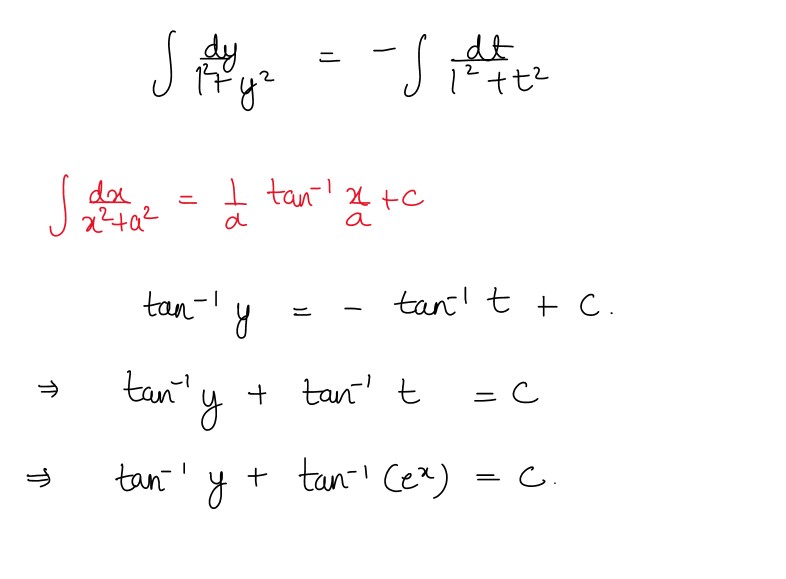 ∫ dy/(1²+y²) = -∫ dt/(1²+t²)
∫ dx/(x²+a²) = 1/a tan⁻¹ x/a + c
tan⁻¹ y = - tan⁻¹ t + C.
⇒ tan⁻¹ y + tan⁻¹ t = C
⇒ tan⁻¹ y + tan⁻¹ (eˣ) = C.